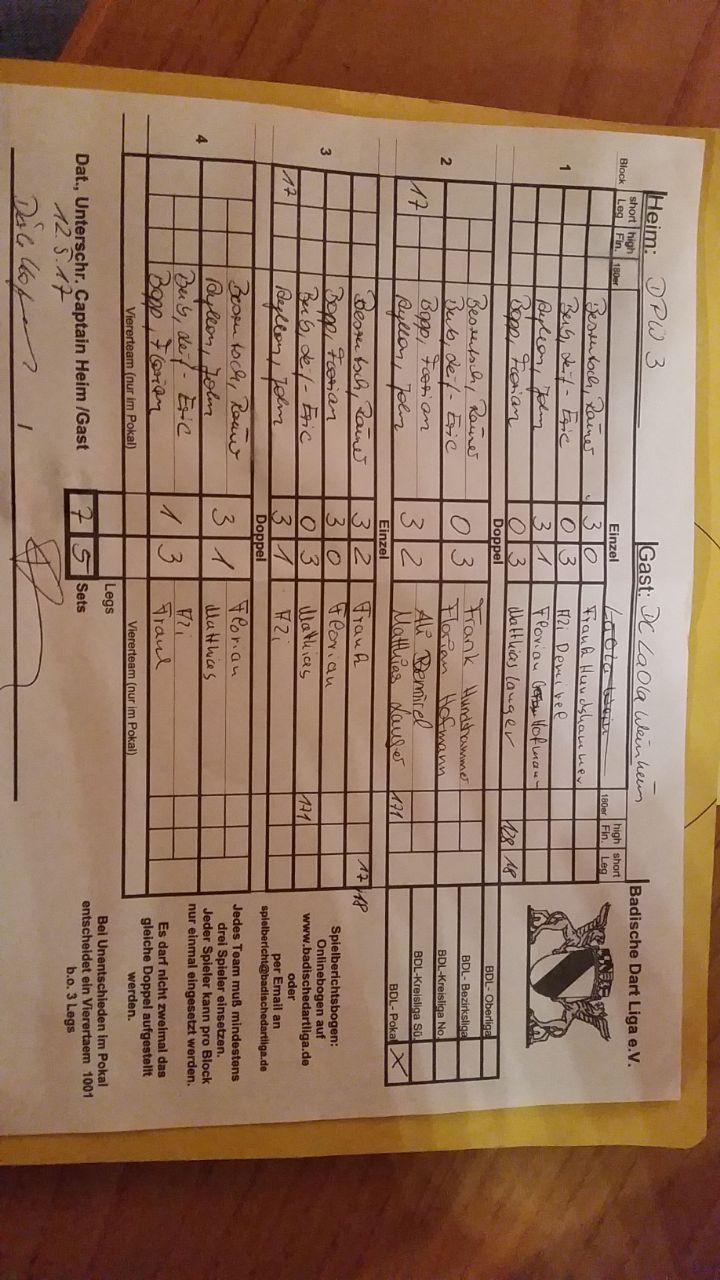 Heim: DPW 3 Gast: DC LaOla Weinheim Badische Dart Liga e.V.
Block short Leg high Fin. 180er Einzel LaOla 180er high Fin. short Leg
1 Rainer 3 0 Frank Hundshammer
Eric 0 3 Azi Demirel
John 3 1 Florian Hofmann
Bopp, Florian 0 3 Matthias Langer 128 18
Doppel
2 Rainer 0 3 Frank Hundshammer
Eric Florian Hofmann
Bopp, Florian 3 2 Ali Demirel
17 John Matthias Langer 171
Einzel
3 Rainer 3 2 Frank 17, 18
Bopp, Florian 3 0 Florian
Eric 0 3 Mathias 171
17 John 3 1 Azi
Doppel
4 Rainer 3 1 Florian
John Matthias
Eric 1 3 Azi
Bopp, Florian Frank
Viererteam (nur im Pokal) Viererteam (nur im Pokal)
Legs
Dat., Unterschr. Captain Heim /Gast 7 5 Sets
12.5.17
BDL - Oberliga
BDL- Bezirksliga
BDL-Kreisliga No.
BDL-Kreisliga Sü.
BDL - Pokal X
Spielberichtsbogen:
Onlinebogen auf
www.badischedartliga.de
oder
per Email an
spielbericht@badischedartliga.de
Jedes Team muß mindestens
drei Spieler einsetzen.
Jeder Spieler kann pro Block
nur einmal eingesetzt werden.
Es darf nicht zweimal das
gleiche Doppel aufgestellt
werden.
Bei Unentschieden im Pokal
entscheidet ein Vierertaem 1001
b.o. 3 Legs